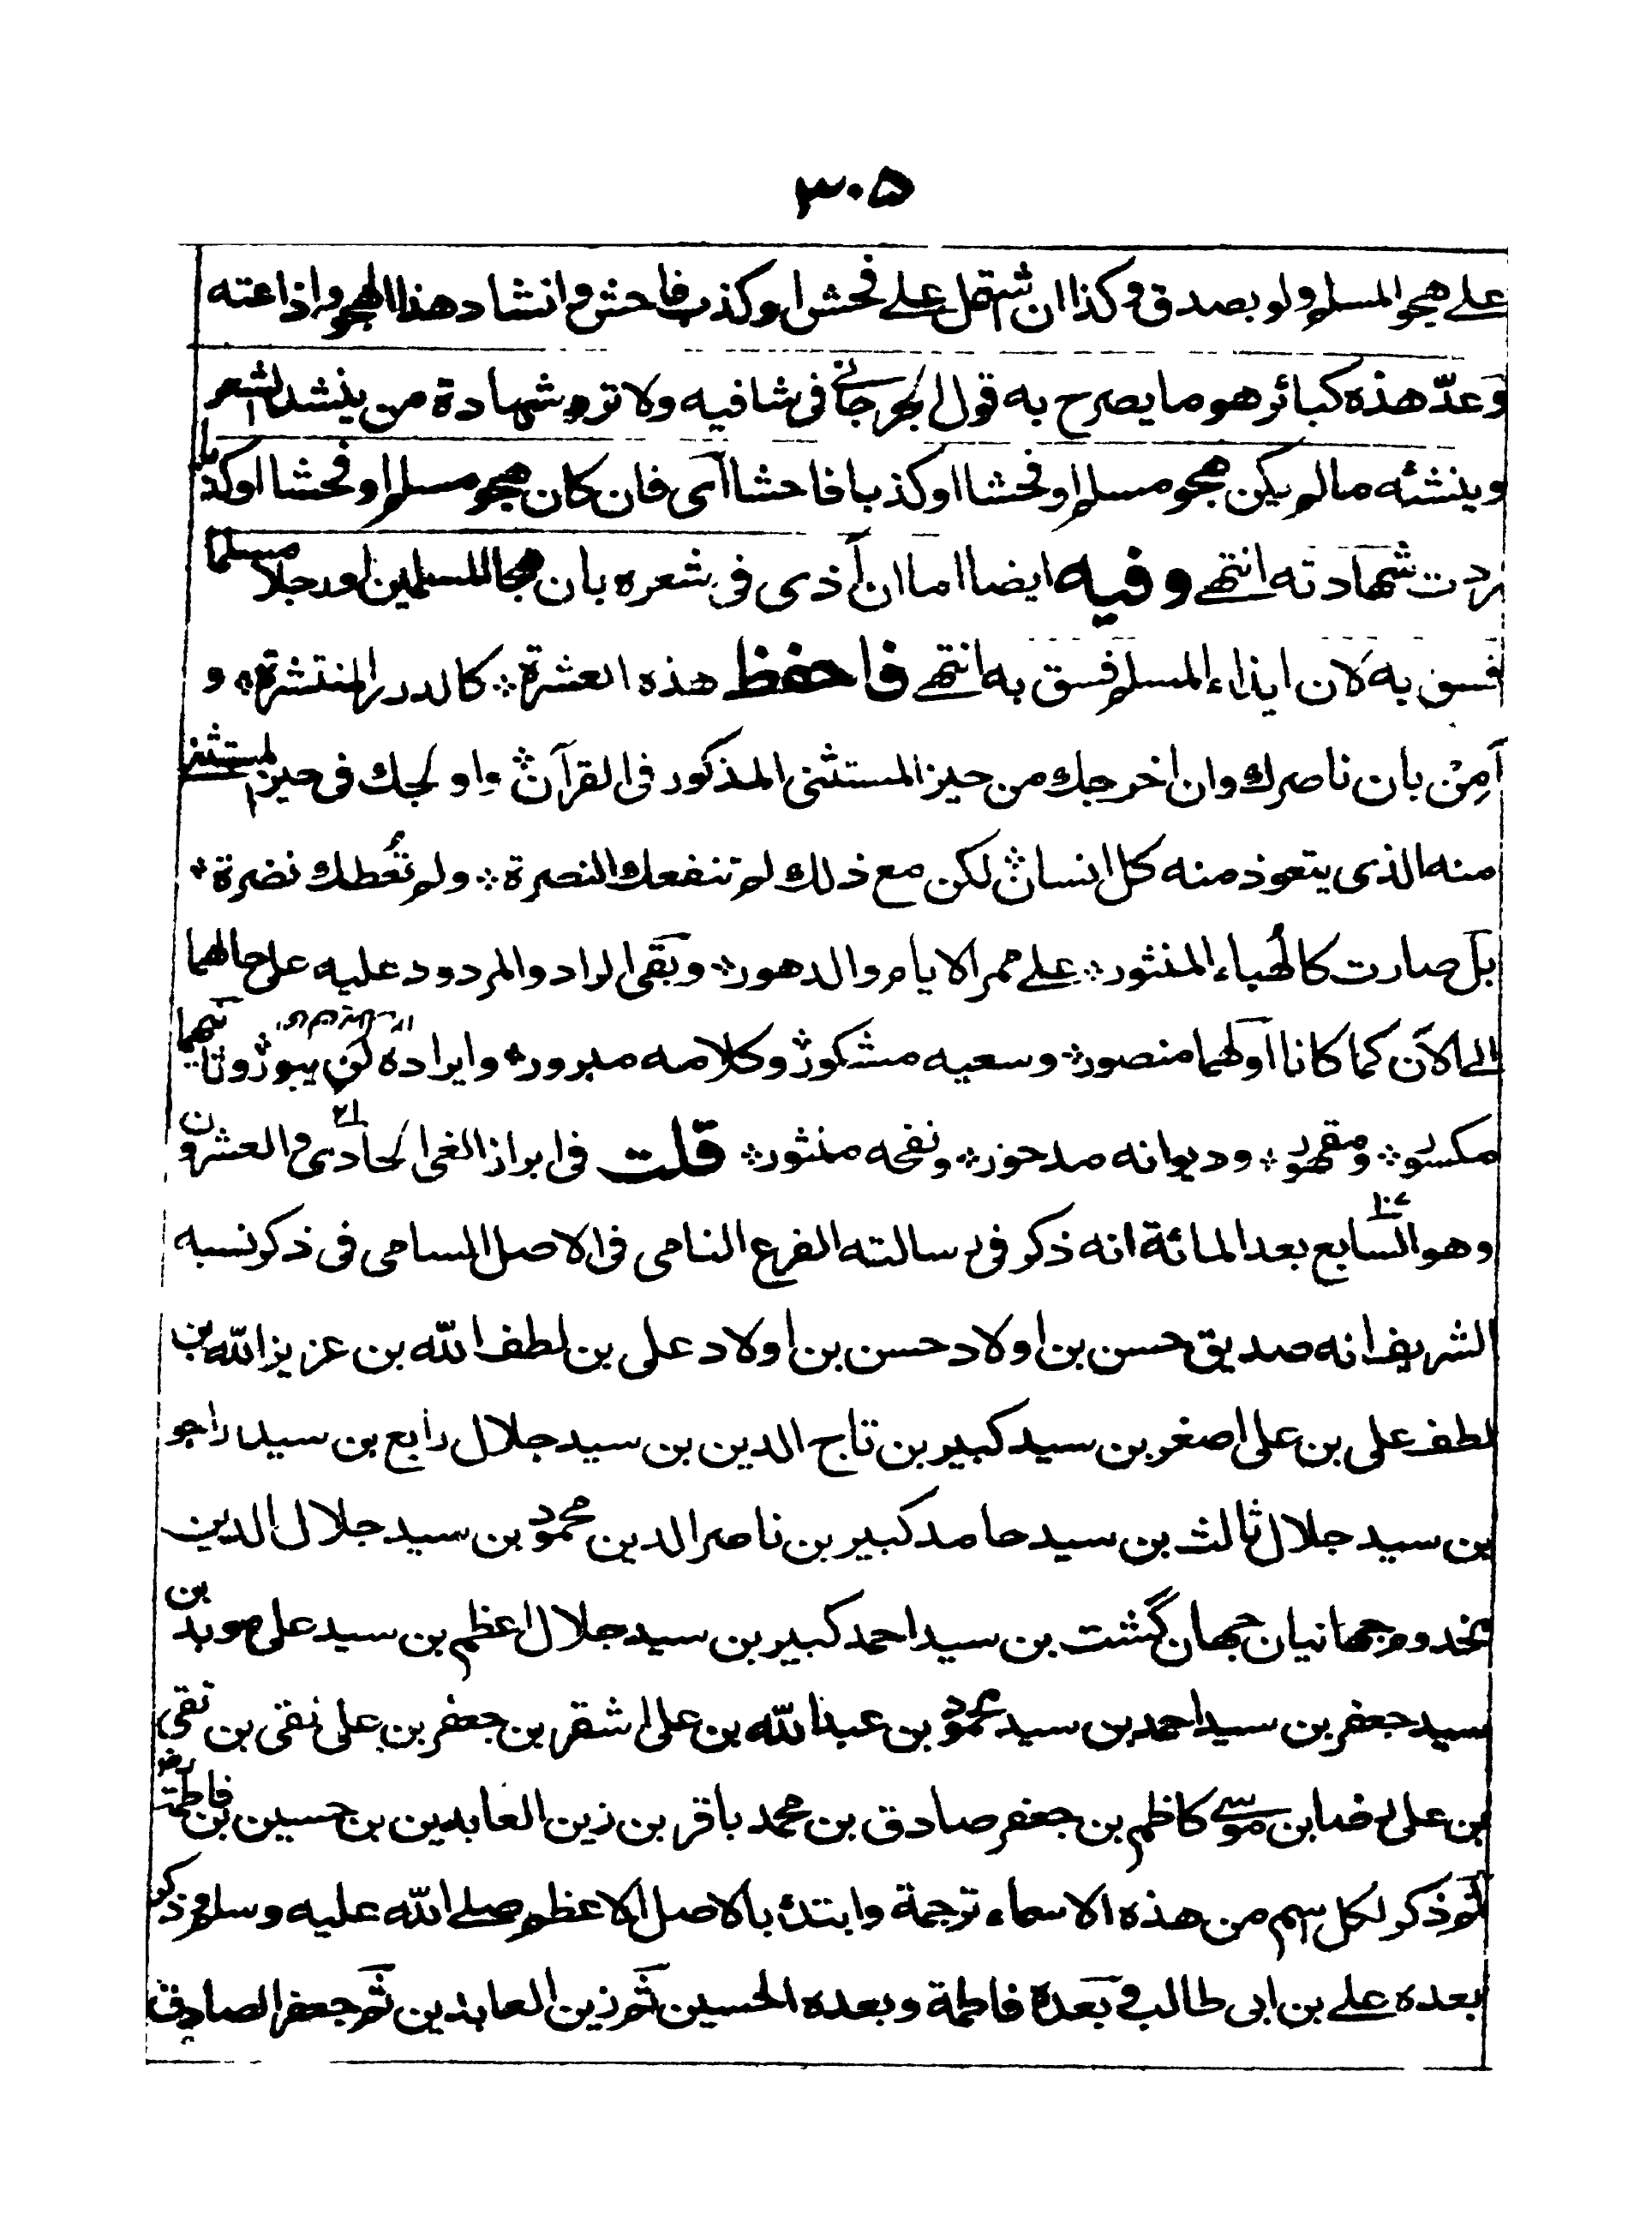 ٣٠٥
على هجو المسلم ولو بصدق وكذا ان اشتمل على فحش او كذب فاحش وانشاد هذا الهجو واذاعته
وعدّ هذه كبائر هو ما يصرح به قول الجرجانى فى شافيه ولا ترد شهادة من ينشد الشعر
وينشئه مالم يكن هجو مسلم او فحشا او كذبا فاحشا اى فان كان هجو مسلم او فحشا او كذبا
ردت شهادته انتهى وفيه ايضا اما ان آذى فى شعره بان هجا المسلمين او رجلا مسلما
فسق به لان ايذاء المسلم فسق به انتهى فاحفظ هذه العشرة كالدرر المنتشرة و
آمِنْ بان ناصرك وان اخرجك من حيز المستثنى المذكور فى القرآن واولجك فى حيز المستثنى
منه الذى يتعوذ منه كل انسان لكن مع ذلك لم تنفعك النصرة ولم تُعطك نضرة
بل صارت كالهُباء المنثور على ممر الايام والدهور وبقى الراد والمردود عليه على حالهما
الى الآن كما كانا اولهما منصور وسعيه مشكور وكلامه مبرور وايراده لن يبور وثانيهما
مكسور ومقهور وديوانه مدحور ونفحه منثور قلت فى ابراز الغى الحادى والعشرون
وهو السابع بعد المائة انه ذكر فى رسالته الفرع النامى فى الاصل السامى فى ذكر نسبه
الشريف انه صديق حسن بن اولاد حسن بن اولاد على بن لطف الله بن عزيز الله بن
لطف على بن على اصغر بن سيد كبير بن تاج الدين بن سيد جلال رابع بن سيد راجو
بن سيد جلال ثالث بن سيد حامد كبير بن ناصر الدين محمود بن سيد جلال الدين
مخدوم جهانيان جهان گشت بن سيد احمد كبير بن سيد جلال اعظم بن سيد على موبد بن
سيد جعفر بن سيد احمد بن سيد محمود بن عبد الله بن على اشقر بن جعفر بن على نقى بن تقى
بن على رضا بن موسى كاظم بن جعفر صادق بن محمد باقر بن زين العابدين بن حسين بن فاطمة رض
ثم ذكر لكل اسم من هذه الاسماء ترجمة وابتدئ بالاصل الاعظم صلى الله عليه وسلم وذكر
بعده على بن ابى طالب وبعده فاطمة وبعده الحسين ثم زين العابدين ثم جعفر الصادق